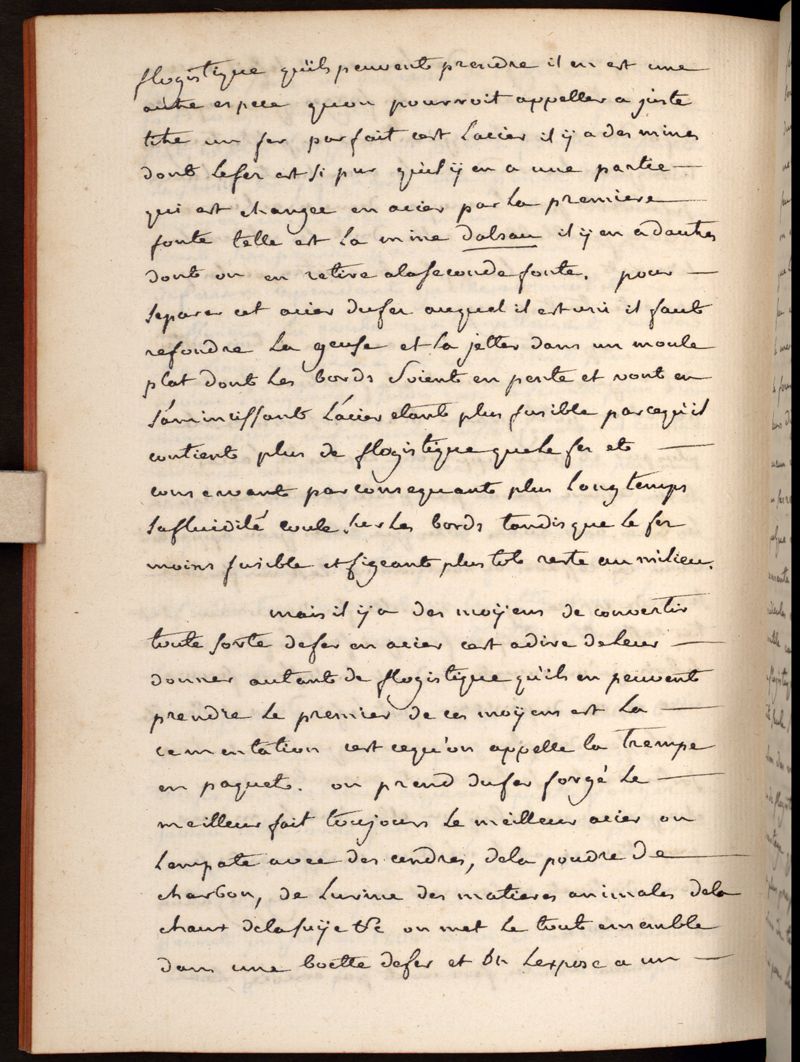 flogistique quils peuvent prendre il en est une
autre espece quon pourroit appeller a juste
titre un fer parfait cest Lacier il ÿ a des mines
dont Lefer est si pur quil ÿ en a une partie —
qui est changée en acier par La premiere
fonte telle est La mine dalsau il ÿ en a dautres
dont on en retire alaseconde fonte. pour —
Separer cet acier dufer auquel il est uni il faut
refondre La geuse et La jetter dans un moule
plat dont Les bords Soient en pente et vont en
S'amincissant L'acier etant plus fusible parcequ'il
contient plus de flogistique que Le fer et —
conservant par consequant plus Longtemps
Safluidité coule Sur Les bords tandis que Le fer
moins fusible et figeant plus tot reste au milieu.
mais il ÿ a des moÿens de convertir
toute Sorte defer en acier cest adire deleur —
donner autant de flogistique qu'ils en peuvent
prendre Le premier de ces moÿens est La —
cementation cest cequ'on appelle la trempe
en paquet. on prend dufer forgé Le —
meilleur fait toujours Le meilleur acier on
Lempate avec des cendres, dela poudre de —
charbon, de Lurine des matieres animales dela
chaux delasuÿe &c on met Le tout ensemble
dans une boette defer et on Lexpose a un —